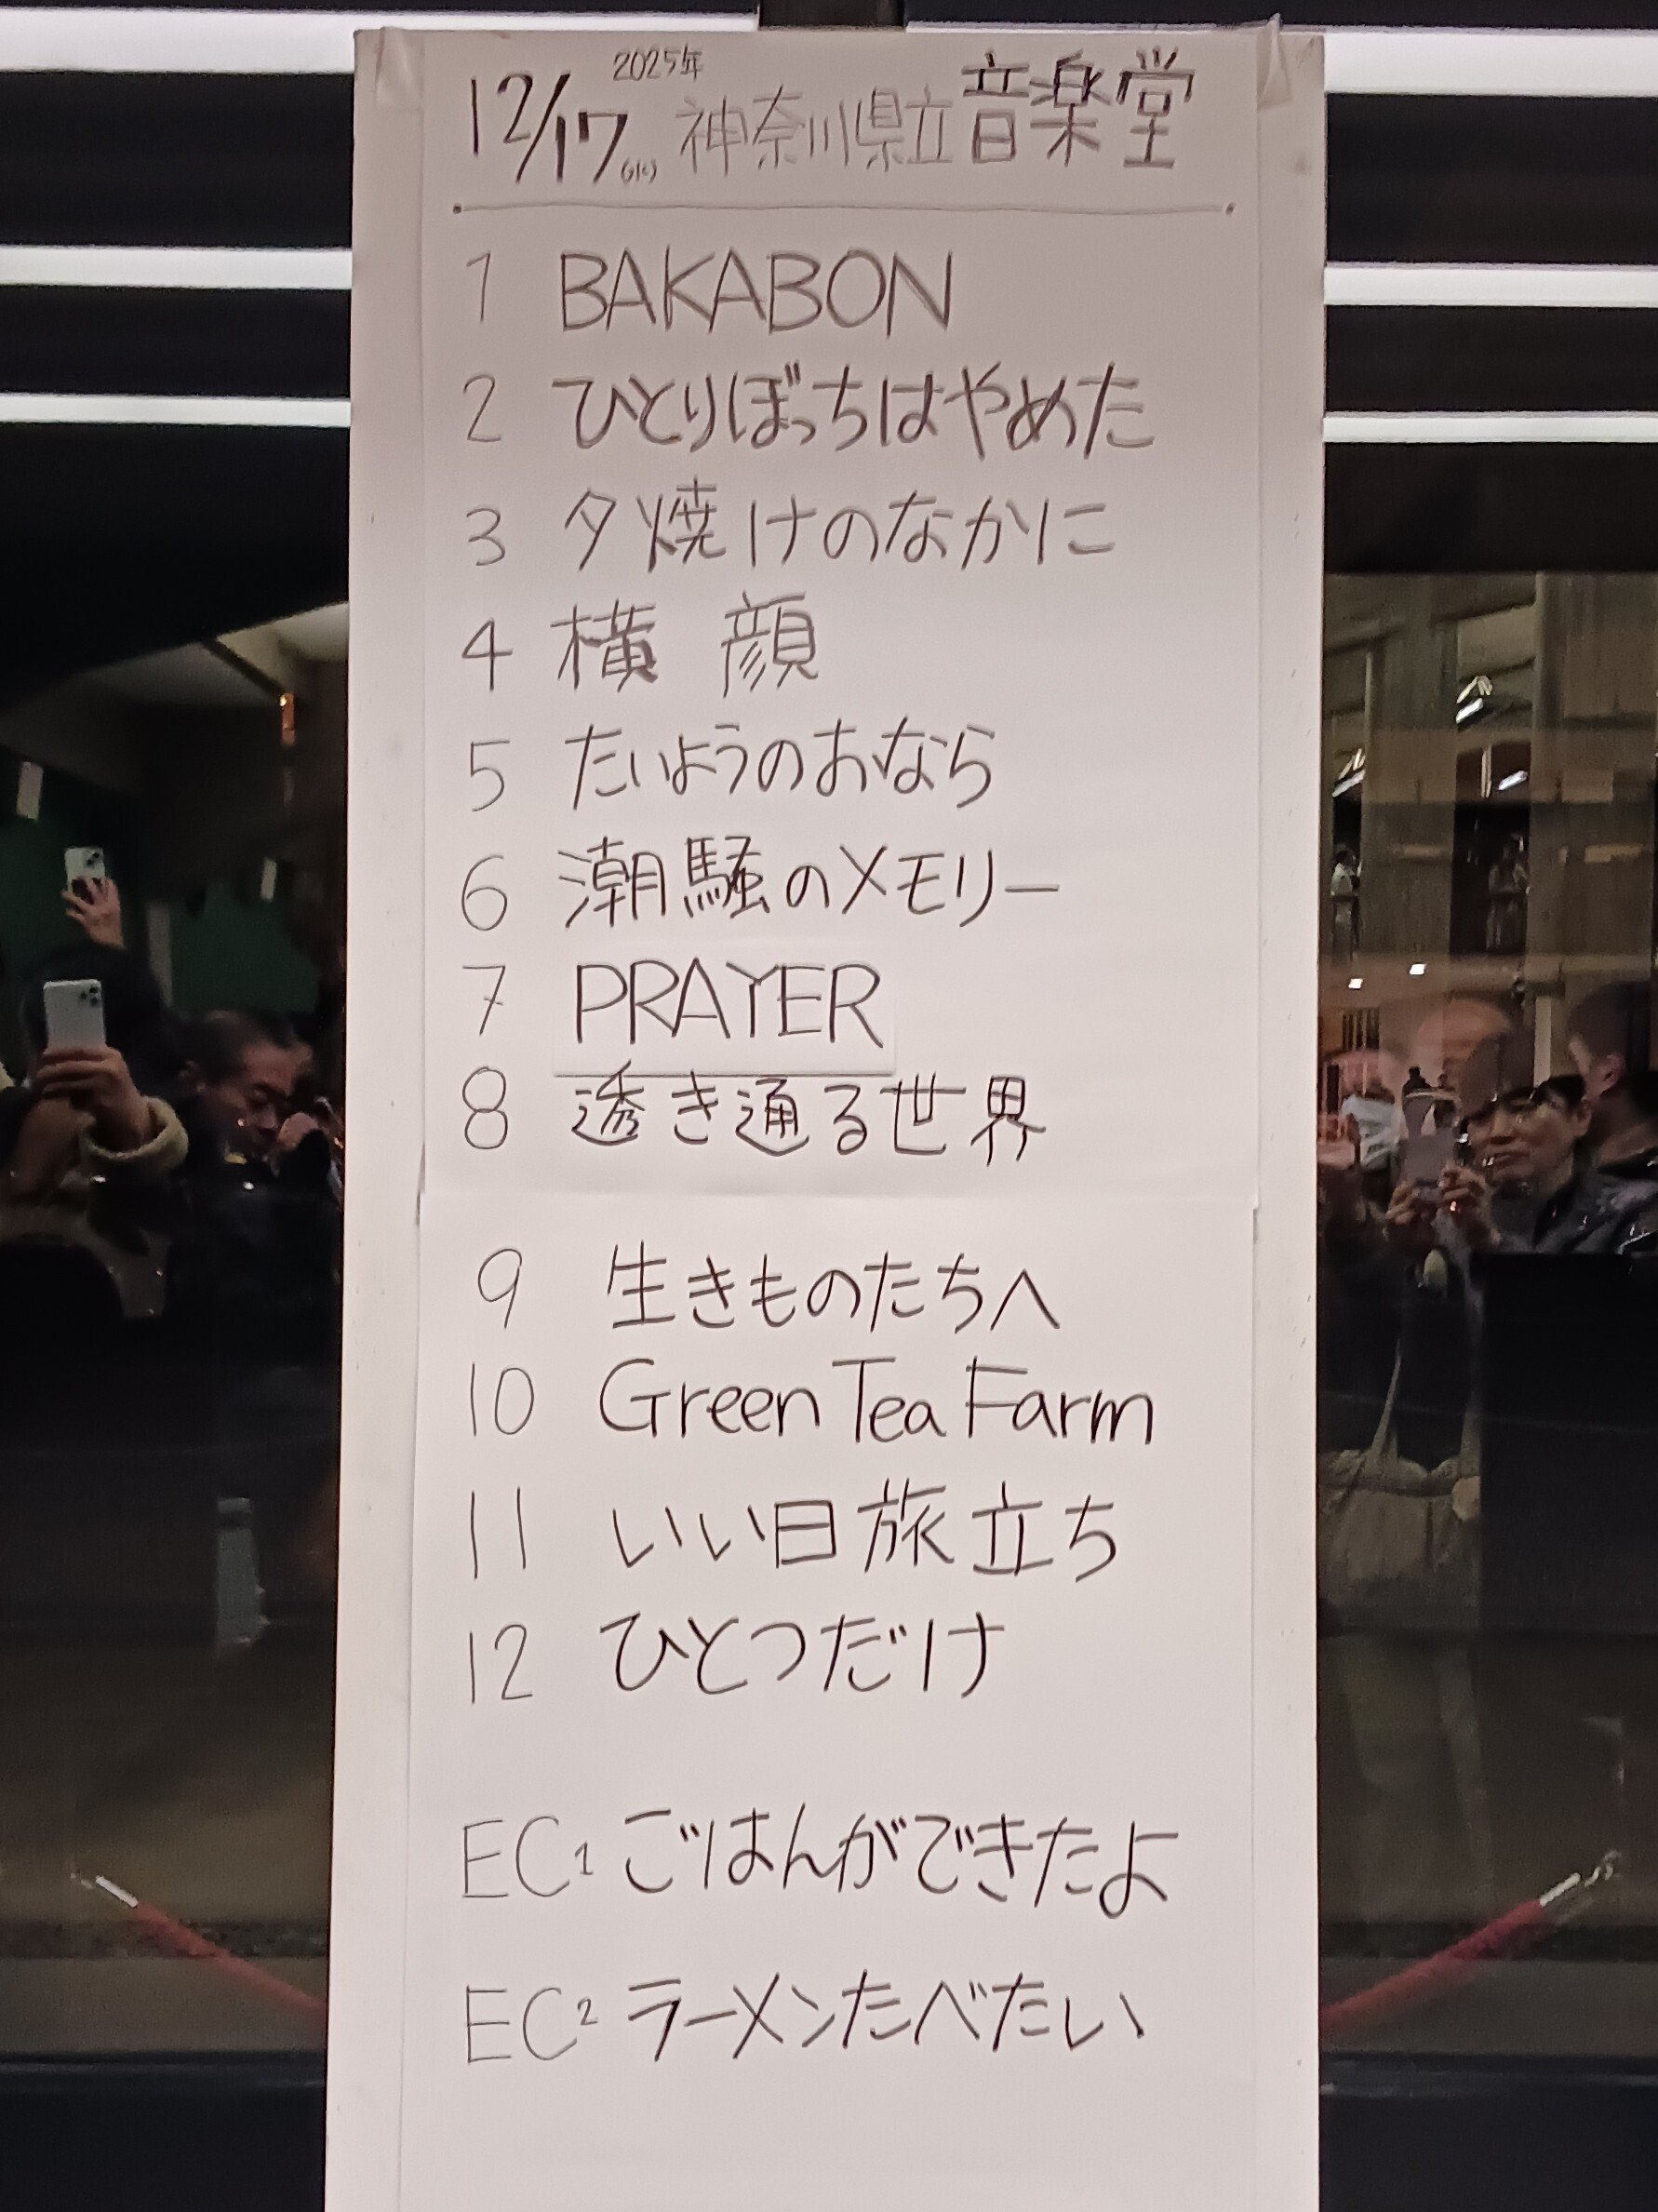 2025年
12/17(水) 神奈川県立音楽堂
1 BAKABON
2 ひとりぼっちはやめた
3 夕焼けのなかに
4 横顔
5 たいようのおなら
6 潮騒のメモリー
7 PRAYER
8 透き通る世界
9 生きものたちへ
10 Green Tea Farm
11 いい日旅立ち
12 ひとつだけ
EC1 ごはんができたよ
EC2 ラーメンたべたい